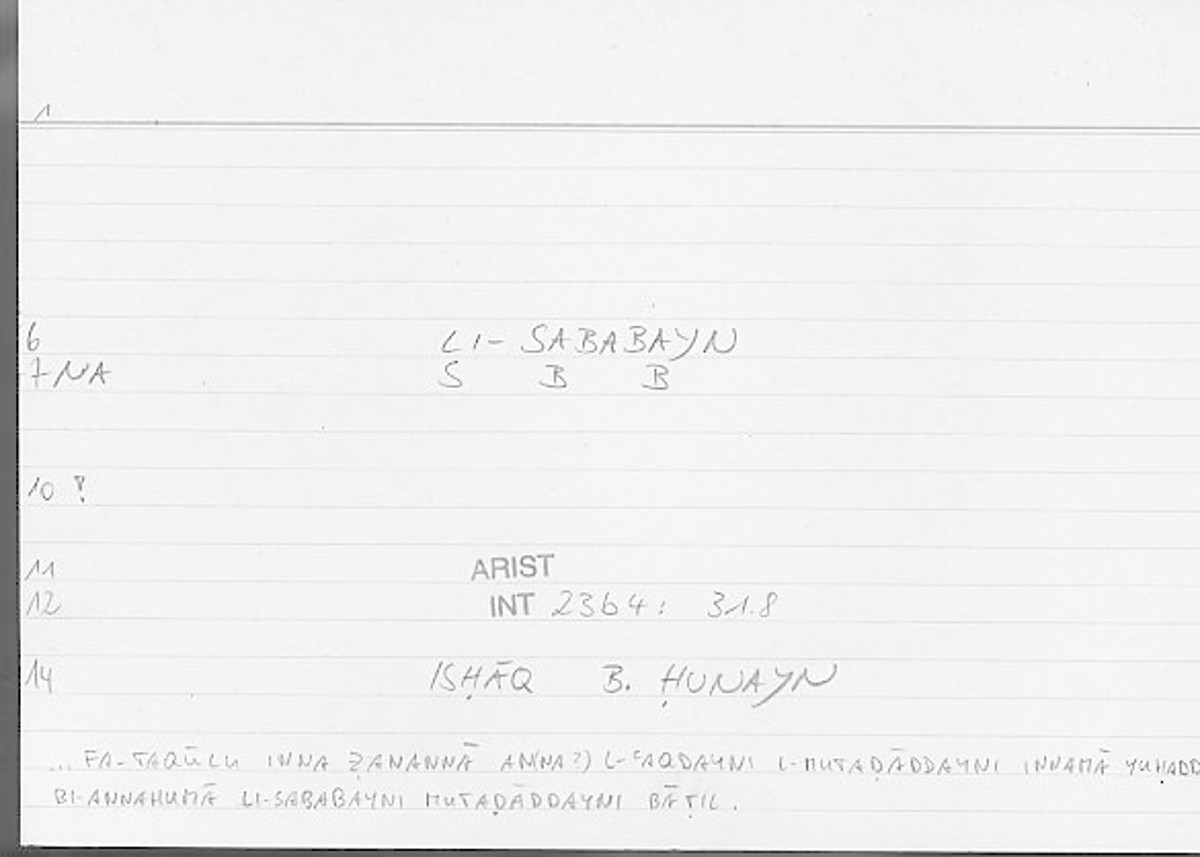 1
6 LI-SABABAYN
7 NA S B B
10 !
11 ARIST
12 INT 23b4: 31.8
14 ISḤĀQ B. ḤUNAYN
... FA-TAQŪLU INNA ẒANANNĀ AN(NA?) L-ʿAQDAYNI L-MUTAḌĀDDAYNI INNAMĀ YUḤADD
BI-ANNAHUMĀ LI-SABABAYNI MUTAḌĀDDAYNI BĀṬIL.